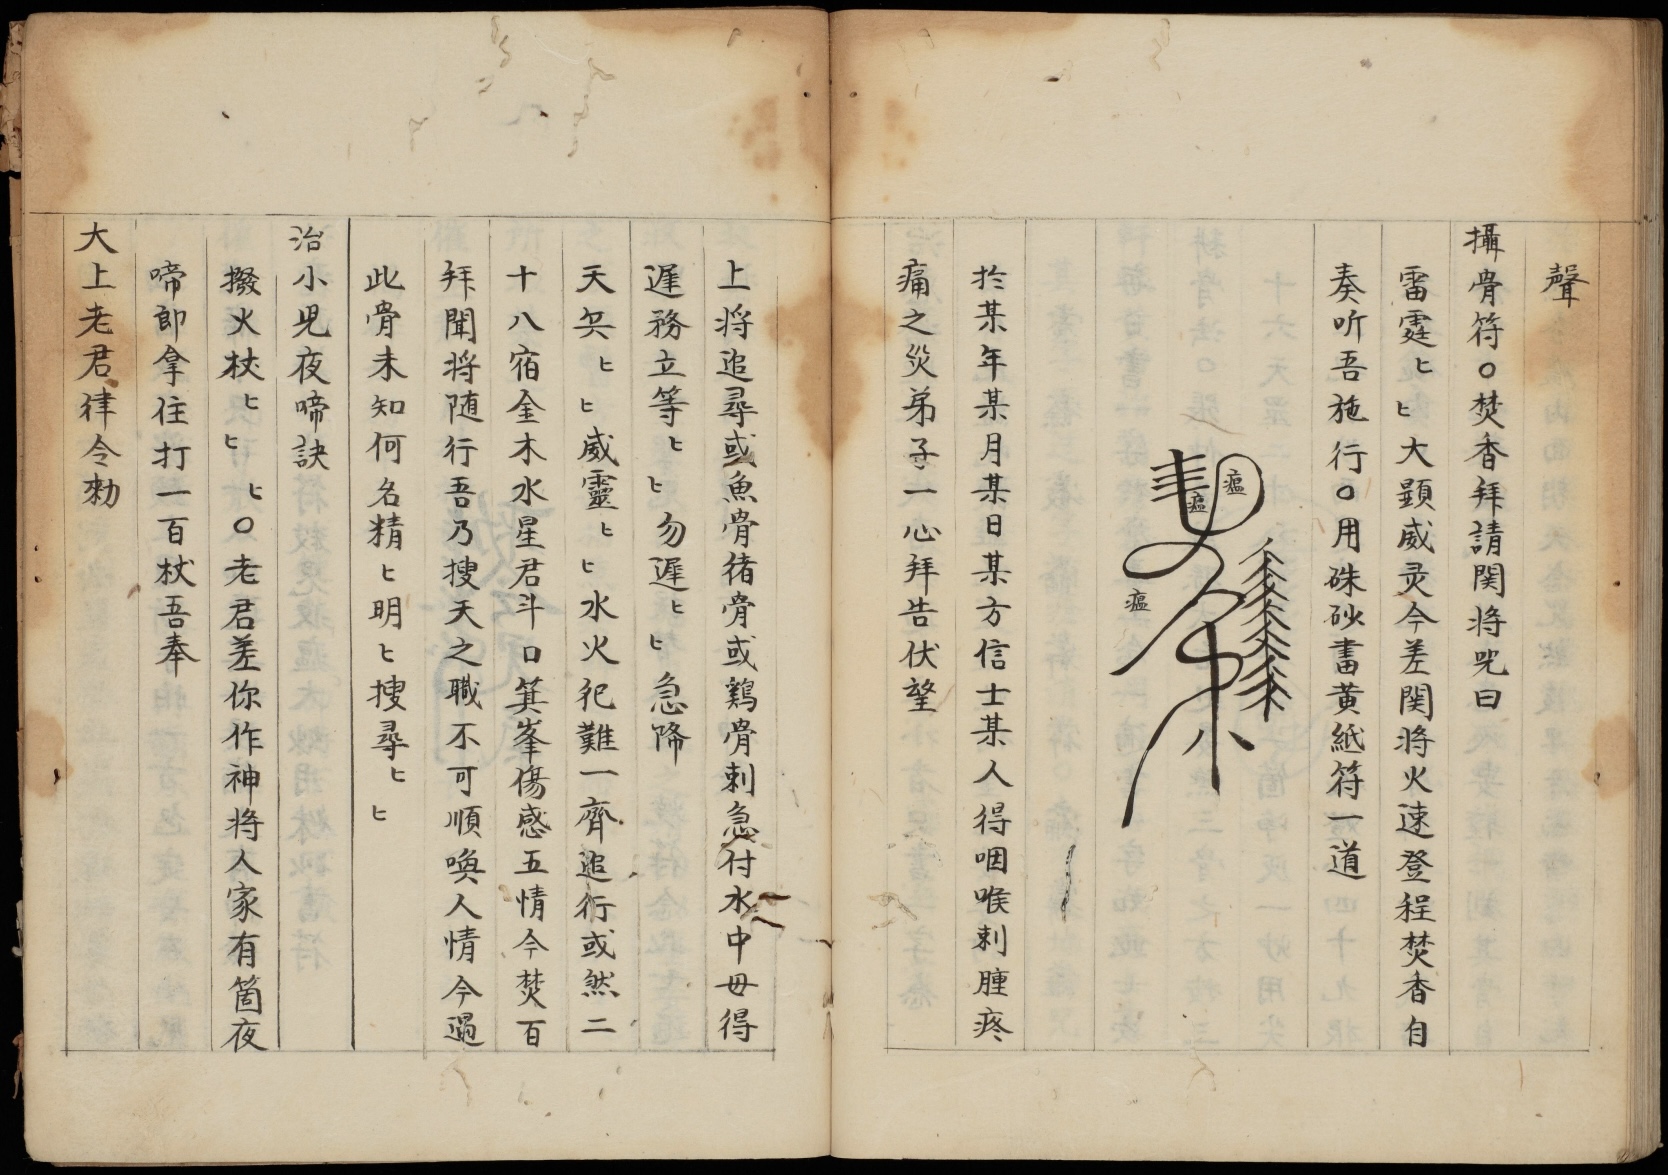 聲
攝骨符〇焚香拜請関将咒曰
雷霆ヒヒ大顕威灵今差関将火速登程焚香自
奏听吾施行〇用硃砂書黄紙符一道
瘟
瘟
瘟
扵某年某月某日某方信士某人得咽喉刺腫疼
痛之災弟子一心拜告伏望
上将追尋或魚骨猪骨或鷄骨刺急付水中毋得
遲務立等ヒヒ勿遲ヒヒ急降
天兵ヒヒ威靈ヒヒ水火犯難一齊追行或然二
十八宿金木水星君斗口箕峯傷感五情今焚百
拜聞将随行吾乃搜天之職不可順喚人情今過
此骨未知何名精ヒ明ヒ搜尋ヒヒ
治小児夜啼訣
撥火杖ヒヒヒ〇老君差你作神将人家有箇夜
啼郎拿住打一百杖吾奉
大上老君律令勑